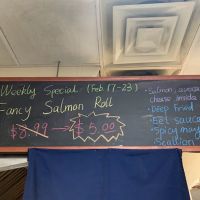 Weekly Special (Feb 17-23)
Fancy Salmon Roll
$8.99 → $5.00
• Salmon, avocado
cheese inside
• Deep fried
• Eel sauce
• Spicy mayo
• Scallion